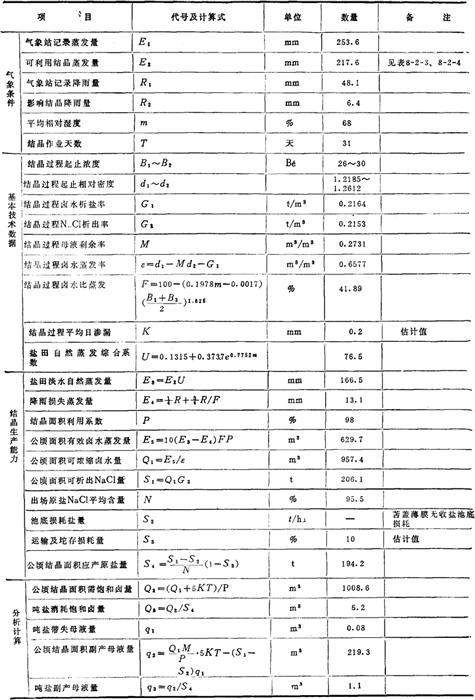 项 目 代号及计算式 单位 数量 备 注
气象条件
气象站记录蒸发量 E₁ mm 253.6
可利用结晶蒸发量 E₂ mm 217.6 见表8-2-3、8-2-4
气象站记录降雨量 R₁ mm 48.1
影响结晶降雨量 R₂ mm 6.4
平均相对湿度 m % 68
结晶作业天数 T 天 31
基本技术数据
结晶过程起止浓度 B₁～B₂ Bé 26～30
结晶过程起止相对密度 d₁～d₂ 1.2185～
1.2612
结晶过程卤水析盐率 G₁ t/m³ 0.2164
结晶过程N..Cl析出率 G₂ t/m³ 0.2153
结晶过程母液剩余率 M m³/m³ 0.2731
结晶过程卤水蒸发率 ε=d₁-Md₂-G₁ m³/m³ 0.6577
结晶过程卤水比蒸发 F=100-(0.1978m-0.0017)
% 41.89
结晶过程平均日渗漏 K mm 0.2 估计值
盐田自然蒸发综合系
数 U=0.1315+0.3737e^0.7752m 76.5
结晶生产能力
盐田淡水自然蒸发量 E₃=E₂U mm 166.5
降雨损失蒸发量 mm 13.1
结晶面积利用系数 P % 98
公顷面积有效卤水蒸发量 E₅=10(E₃-E₄)FP m³ 629.7
公顷面积可浓缩卤水量 Q₁=E₅/ε m³ 957.4
公顷面积可析出NaCl量 S₁=Q₁G₂ t 206.1
出场原盐NaCl平均含量 N % 95.5
池底损耗盐量 S₂ — 苫盖薄膜无收盐池底
损耗
运输及坨存损耗量 S₃ % 10 估计值
公顷结晶面积应产原盐量 S₄=(S₁-S₂)/N(1-S₃) t 194.2
分析计算
公顷结晶面积需饱和卤量 Q₂=(Q₁+5KT)/P m³ 1008.6
吨盐消耗饱和卤量 Q₃=Q₂/S₄ m³ 5.2
吨盐带失母液量 q₁ m³ 0.08
公顷结晶面积副产母液量 q₂=Q₁M/P-5KT-(S₁-
S₂)q₁ m³ 219.3
吨盐副产母液量 q₃=q₂/S₄ m³ 1.1